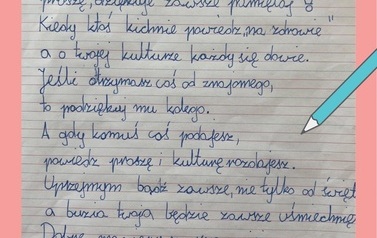 proszę, dziękuję zawsze pamiętaj o
Kiedy ktoś kichnie powiedz „na zdrowie"
a o twojej kulturze każdy się dowie.
Jeśli otrzymasz coś od znajomego,
to podziękuj mu kolego.
A gdy komuś coś podajesz,
powiedz proszę i kulturę rozdajesz.
Uprzejmym bądź zawsze, nie tylko od święt
a buzia twoja będzie zawsze uśmiechnię
Dobre